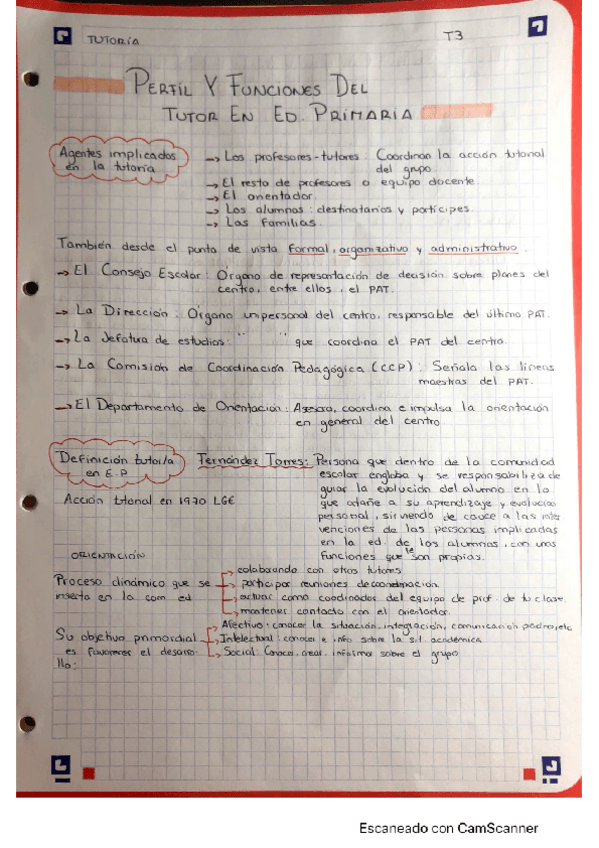 TUTORÍA
T3
PERFIL Y FUNCIONES DEL
TUTOR EN ED. PRIMARIA
Agentes implicados
en la tutoría
→ Los profesores-tutores: Coordinan la acción tutorial
del grupo
→ El resto de profesores o equipo docente.
→ El orientador.
→ Los alumnos: destinatarios y partícipes.
→ Las familias.
También desde el punto de vista formal, organizativo y administrativo.
→ El Consejo Escolar: Órgano de representación de decisión sobre planes del
centro, entre ellos, el PAT.
→ La Dirección: Órgano unipersonal del centro, responsable del último PAT.
→ La Jefatura de estudios: " " que coordina el PAT del centro.
→ La Comisión de Coordinación Pedagógica (CCP): Señala las líneas
maestras del PAT.
→ El Departamento de Orientación: Asesora, coordina e impulsa la orientación
en general del centro
Definición tutor/a
en E.P
Fernández Torres: Persona que dentro de la comunidad
escolar engloba y se responsabiliza de
guiar la evolución del alumno en lo
que atañe a su aprendizaje y evolución
personal, sirviendo de cauce a las inter
venciones de las personas implicadas
en la ed. de los alumnos, con unas
funciones que le son propias.
Acción tutorial en 1970 LGE
ORIENTACIÓN
Proceso dinámico que se
inserta en la com ed
→ colaborando con otros tutores
→ participar reuniones de coordinación.
→ actuar como coordinador del equipo de prof. de tu clase.
→ mantener contacto con el orientador.
Su objetivo primordial
es favorecer el desarro
llo:
→ Afectivo: conocer la situación, integración, comunicación padres, etc
→ Intelectual: conocer e info sobre la sit. académica
→ Social: Conocer, crear, informar sobre el grupo
Escaneado con CamScanner